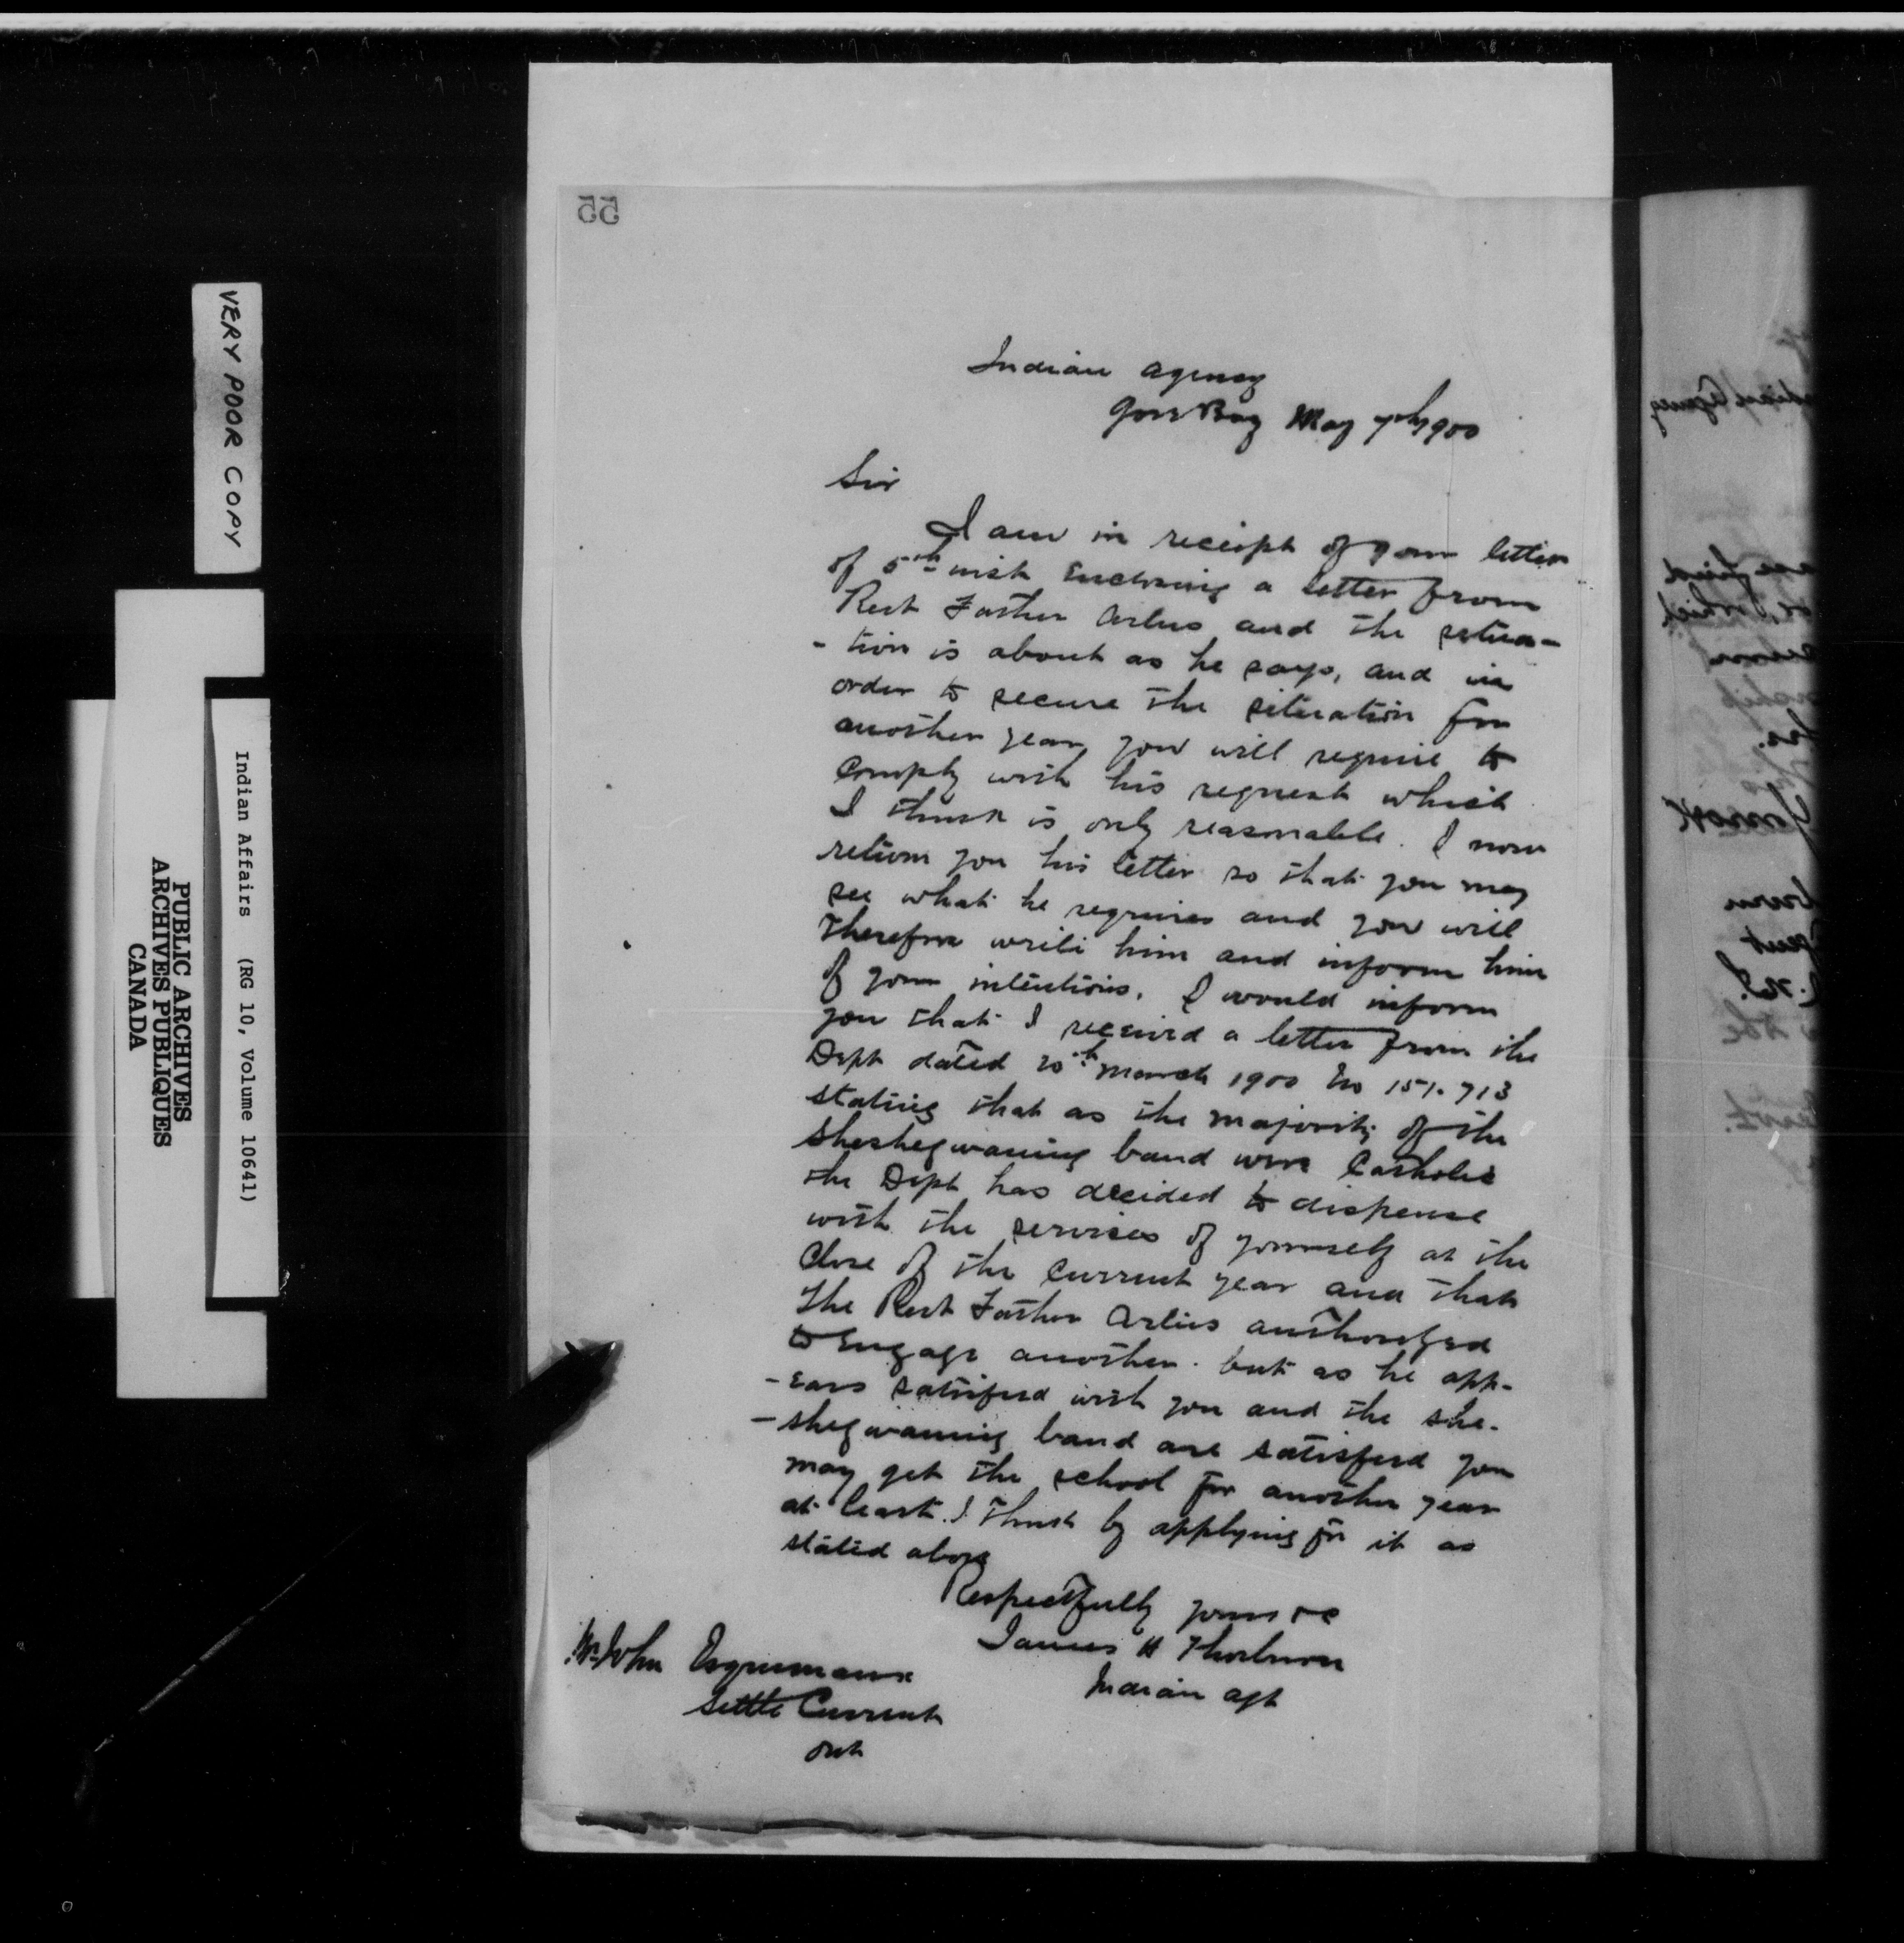 55
Indian Agency
Gore Bay May 7th 1900
Sir
I am in receipt of your letter
of 5th inst Enclosing a letter from
Revd Father Artus and the situa-
-tion is about as he says, and in
order to secure the situation for
another year you will require to
Comply with his request which
I think is only reasonable. I now
return you his letter so that you may
see what he requires and you will
therefore write him and inform him
of your intentions. I would inform
you that I received a letter from the
Dept dated 20th March 1900 No 151.713
stating that as the majority of the
Sheshegwaning band were Catholic
the Dept has decided to dispense
with the services of yourself at the
Close of the Current year and that
the Revd Father Artus authorized
to Engage another. but as he app-
-ears satisfied with you and the She-
-shegwaning band are satisfied you
may get the school for another year
at least. I think by applying for it as
stated above
Respectfully yours &c
James H Thorburn
Indian Agt
Mr John Esquimaux
Little Current
Ont
VERY POOR COPY
Indian Affairs (RG 10, Volume 10641)
PUBLIC ARCHIVES
ARCHIVES PUBLIQUES
CANADA